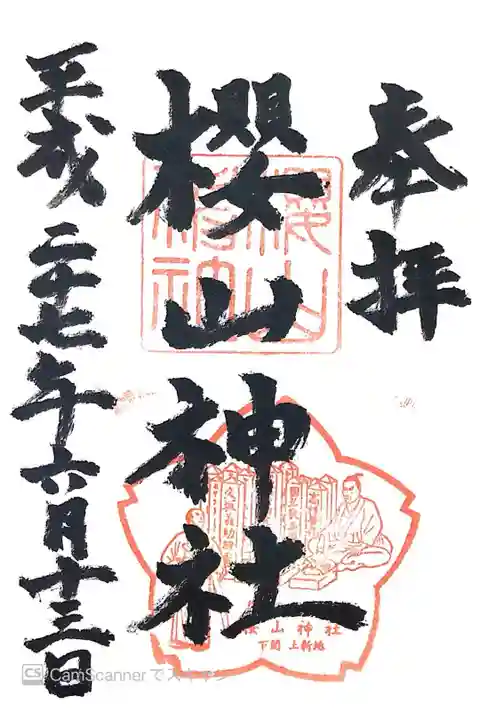 奉拝
櫻山神社
平成二十七年六月十三日
桜山神社
下関 上新地
CS CamScannerでスキャン